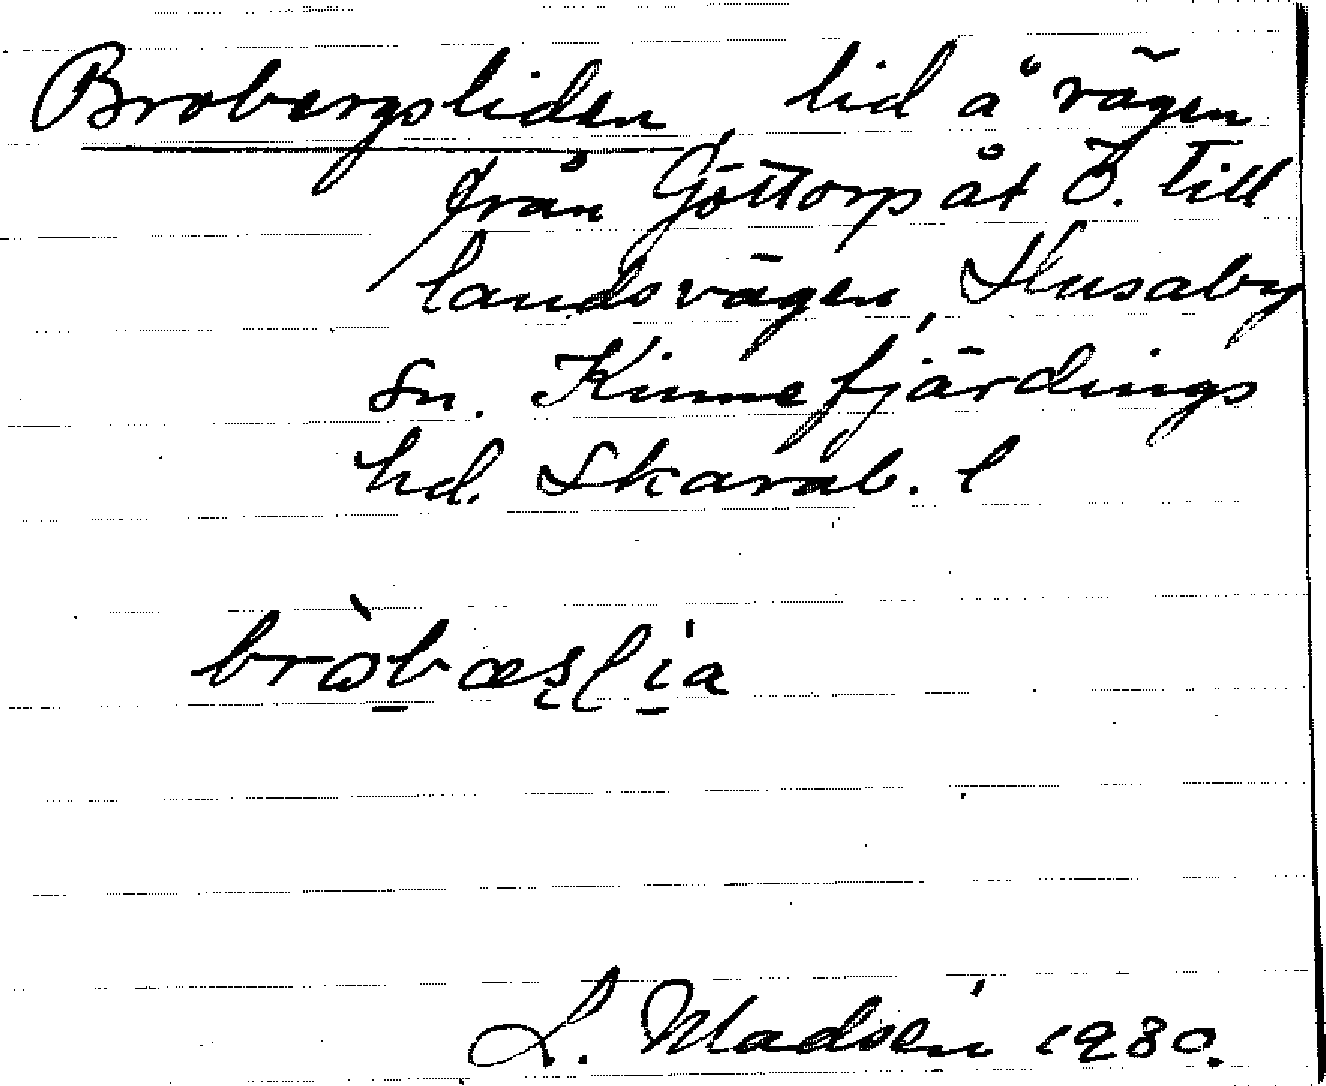 Brobergsliden, lid å vägen
från Göttorp åt Ö. till
landsvägen, Husaby
sn. Kinnefjärdings
hd. Skarab. l
bròbæşlia
L. Madsén 1930.